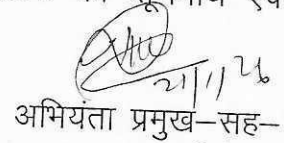 21/1/26
अभियंता प्रमुख–सह–